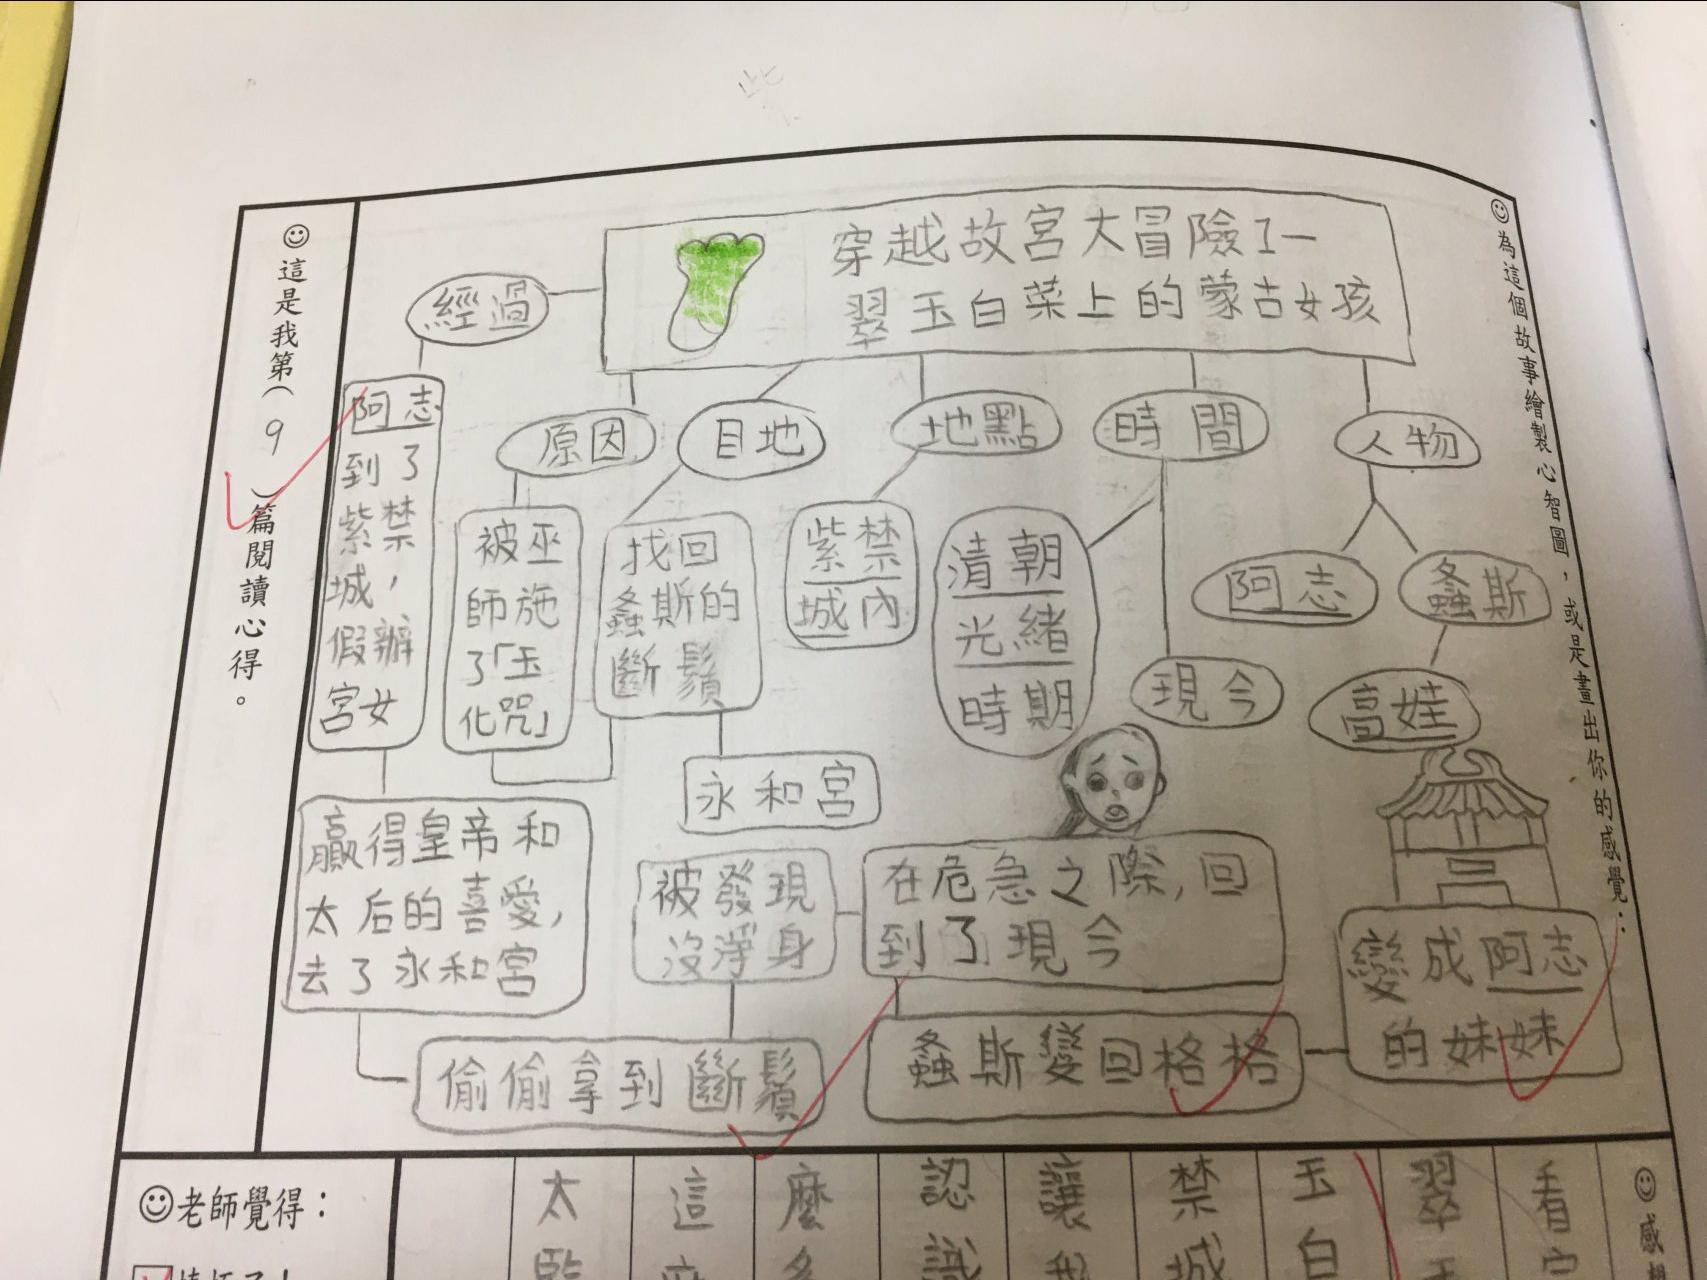 為這個故事繪製心智圖，或是畫出你的感覺：
穿越故宮大冒險1—
翠玉白菜上的蒙古女孩
人物
阿志
螽斯
高娃
時間
清朝
光緒
時期
現今
地點
紫禁
城內
目地
找回
螽斯的
斷鬚
永和宮
原因
被巫
師施
了「玉
化咒」
經過
阿志
到了
紫禁
城，
假辦
宮女
贏得皇帝和
太后的喜愛，
去了永和宮
偷偷拿到斷鬚
被發現
沒淨身
在危急之際，回
到了現今
螽斯變回格格
變成阿志
的妹妹
這是我第（9）篇閱讀心得。
看
翠
玉白
禁城
讓我
認識
麼多
這
太監
老師覺得：